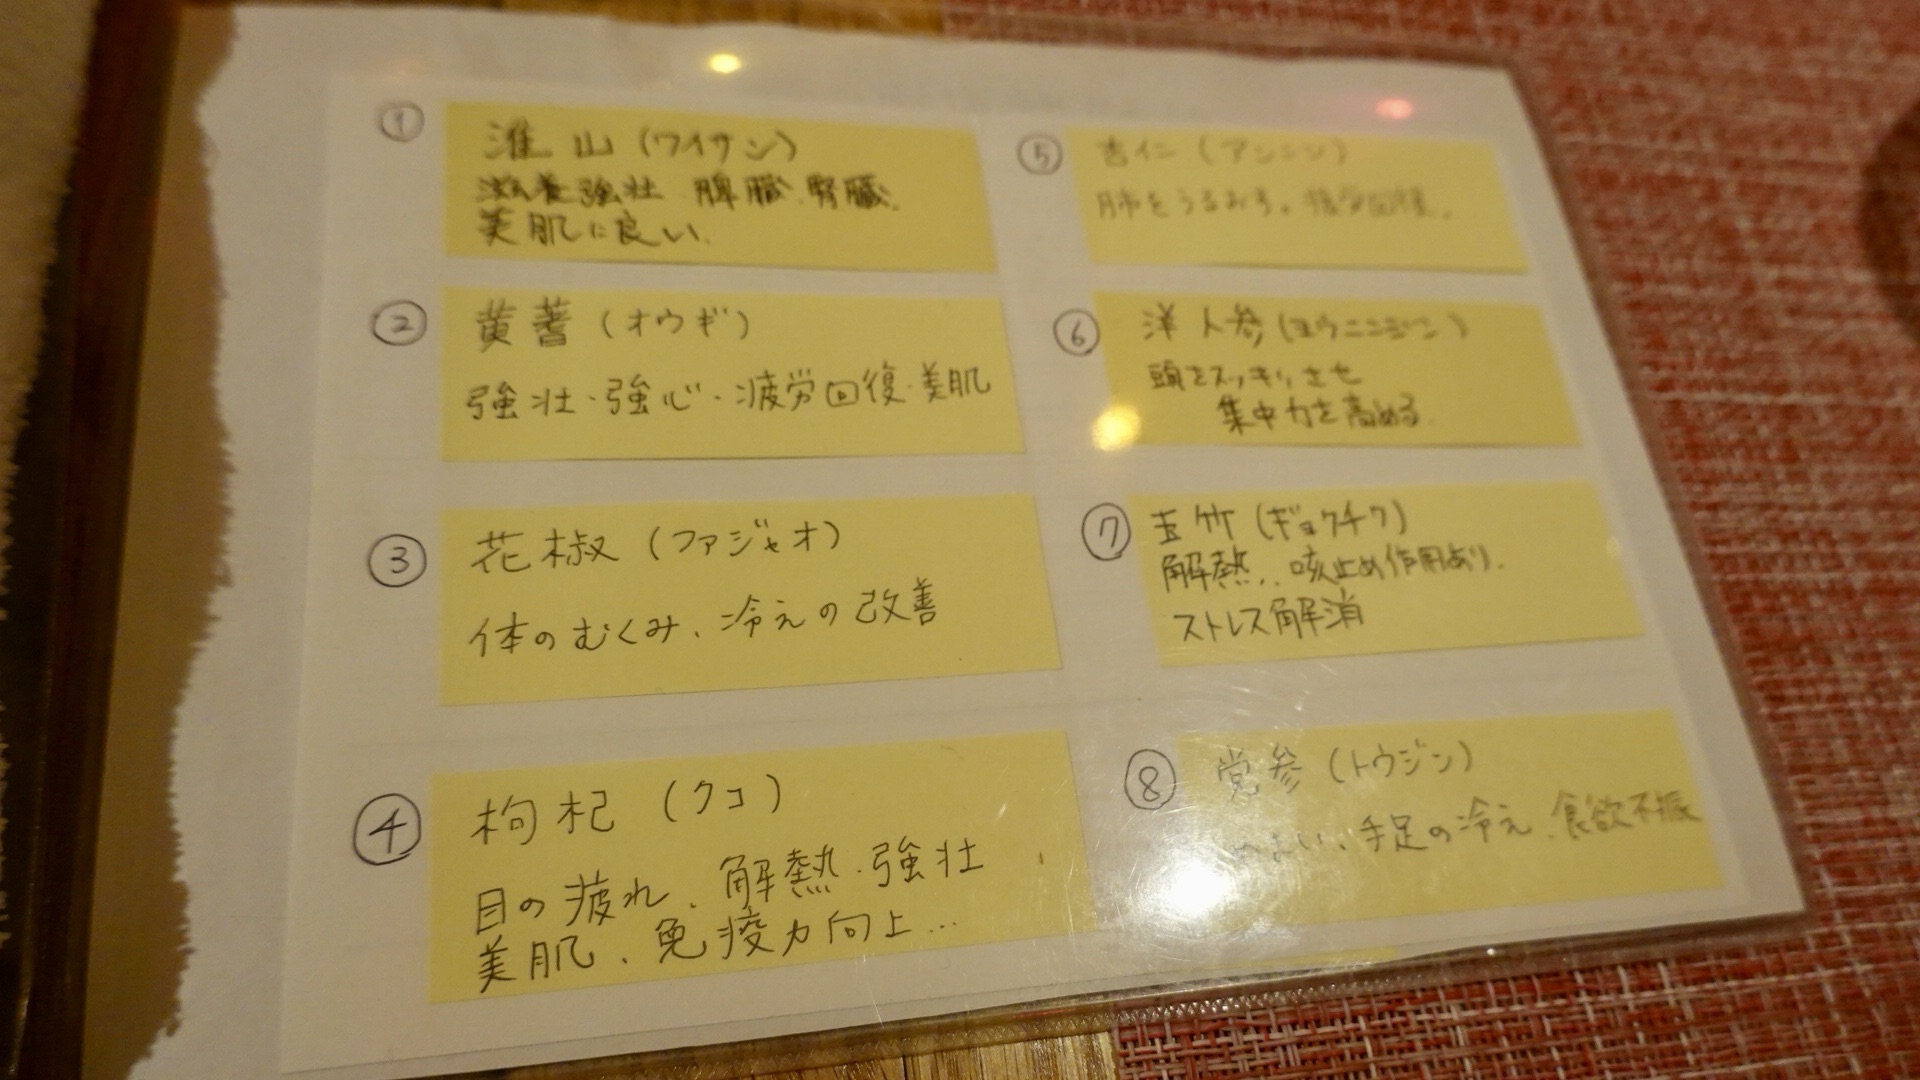 ①
淮山（ワイサン）
滋養強壮 脾臓、腎臓、
美肌に良い、
②
黄蓍（オウギ）
強壮・強心・疲労回復・美肌
③
花椒（ファジャオ）
体のむくみ、冷えの改善
④
枸杞（クコ）
目の疲れ、解熱・強壮
美肌、免疫力向上…
⑤
杏仁（アンニン）
肺をうるおす。疲労回復。
⑥
洋人参（ヨウニンジン）
頭をスッキリさせ
集中力を高める
⑦
玉竹（ギョクチク）
解熱、咳止め作用あり。
ストレス解消
⑧
党参（トウジン）
めまい、手足の冷え、食欲不振